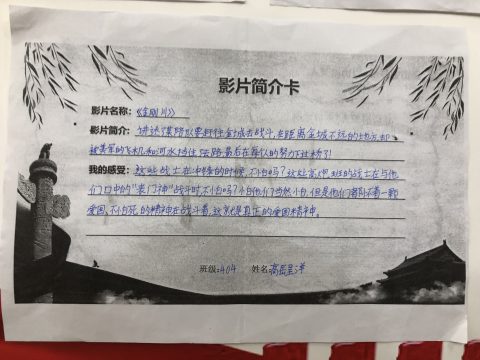 影片简介卡
影片名称:《金刚川》
影片简介:讲述某部队要赶往金城去战斗,在距离金城不远的地方,却
被美军的飞机和河水挡住去路最后在每人的努力下过桥了!
我的感受:这些战士在冲锋的时候,不怕吗?这些高炮班的战士在与他
们口中的"来了神"战斗时不怕吗?不怕他们当然怕,但是他们都怀着一颗
爱国、不怕死的精神在战斗着,这就是真正的爱国精神。
班级:404 姓名:高